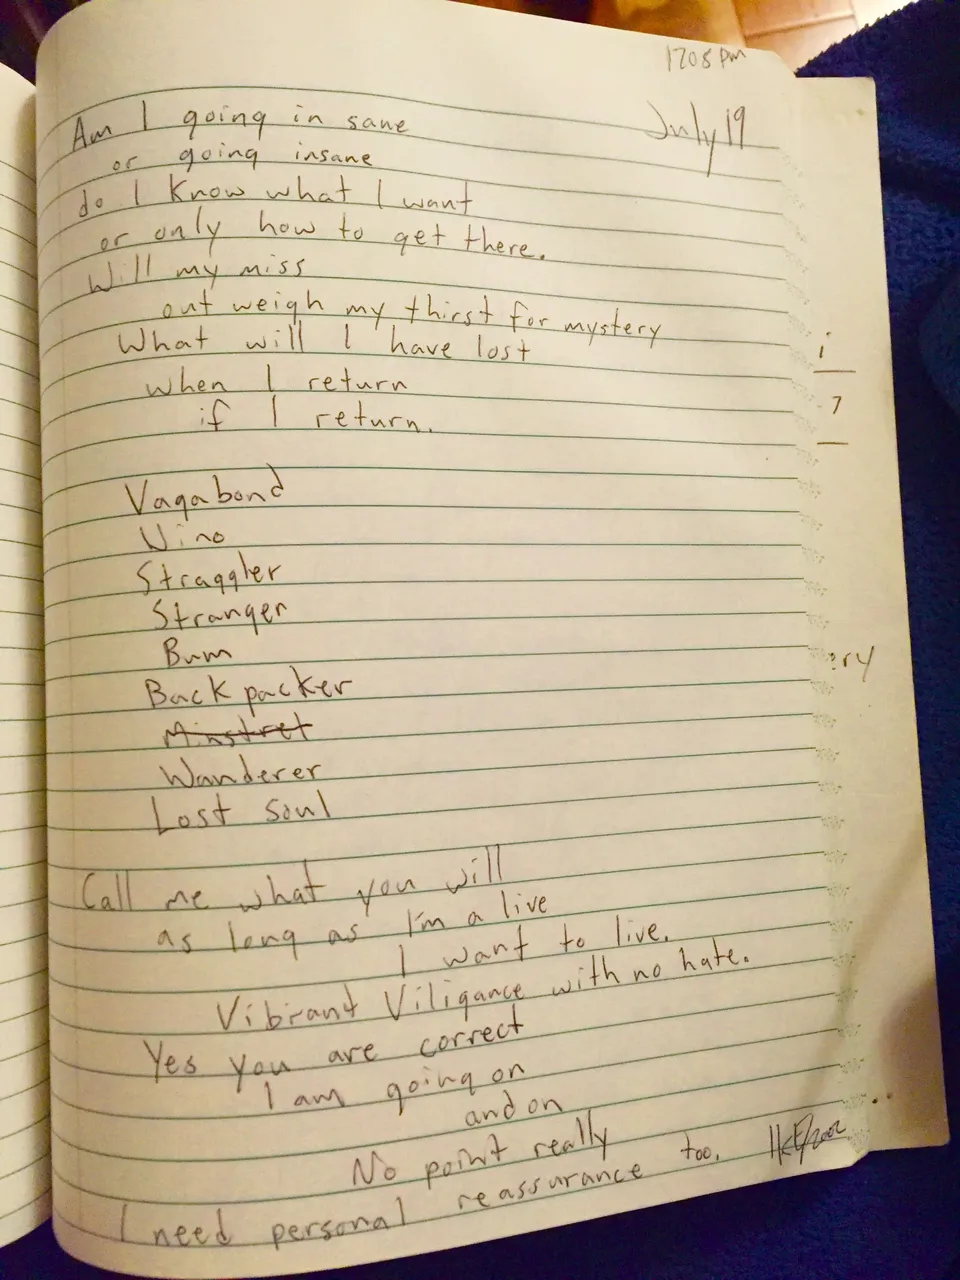 1208 pm
July 19
Am I going in sane
or going insane
do I know what I want
or only how to get there.
Will my miss
out weigh my thirst for mystery
What will I have lost
when I return
if I return.
Vagabond
Wino
Straggler
Stranger
Bum
Back packer
Minstrel
Wanderer
Lost soul
Call me what you will
as long as I'm a live
I want to live.
Vibrant Viligance with no hate.
Yes you are correct
I am going on
and on
No point really
I need personal reassurance too.
i
7
ery